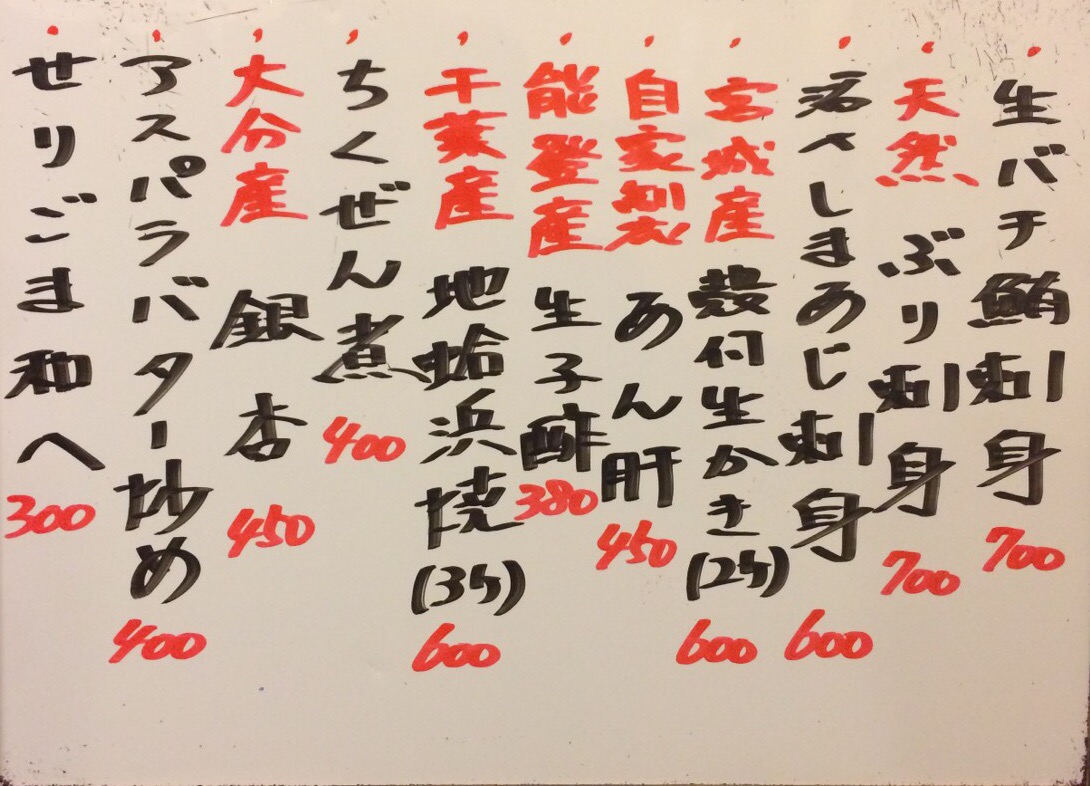 生バチ鮪刺身 700
天然 ぶり刺身 700
活〆しまあじ刺身 600
宮城産 殻付生かき(2ケ) 600
自家製 あん肝 450
能登産 生子酢 380
千葉産 地蛤浜焼(3ケ) 600
ちくぜん煮 400
大分産 銀杏 450
アスパラバター炒め 400
せりごま和へ 300